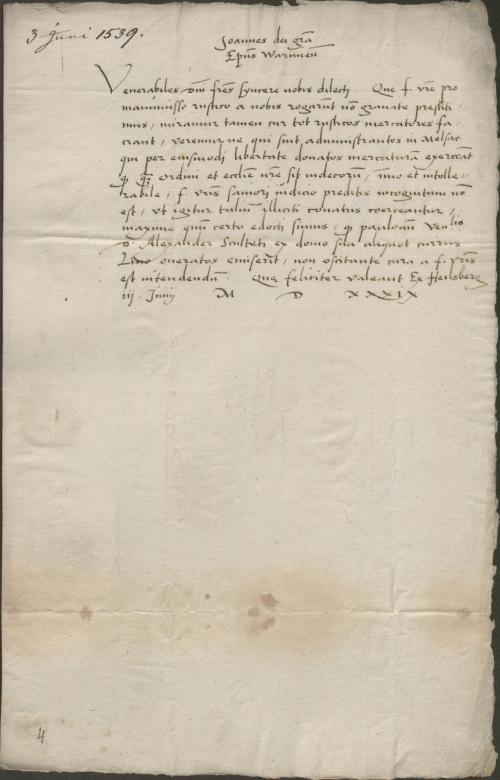 3 Juni 1539.
Joannes dei gra
Epus Warmien
Venerabiles, dni fres syncere nobis dilecti. Que f. vre pro
manumisso rustico a nobis rogarunt no grauate prestiti-
mus, miramur tamen cur tot rusticos mercatores fa-
ciant, veremur ne qui sint administrantos in Melsac
qui per eiusmodi libertate donatos mercatura exerceat
q Ordini et ecclie nre sit indecoru, imo et intolle-
rabile, f. vris saniorj iudicio preditis incognitum no
est, vt igitur talium illiciti conatus coerceantur,
maxime qum certo edocti simus, q pauloan Venlis
d. Alexander Sculteti ex domo sua aliquot currus
Lino oneratos emiserit, non oscitante cura a f. vris
est intendendu. Que feliciter valeant Ex Heilsberg
iij Junij M D XXXIX
4